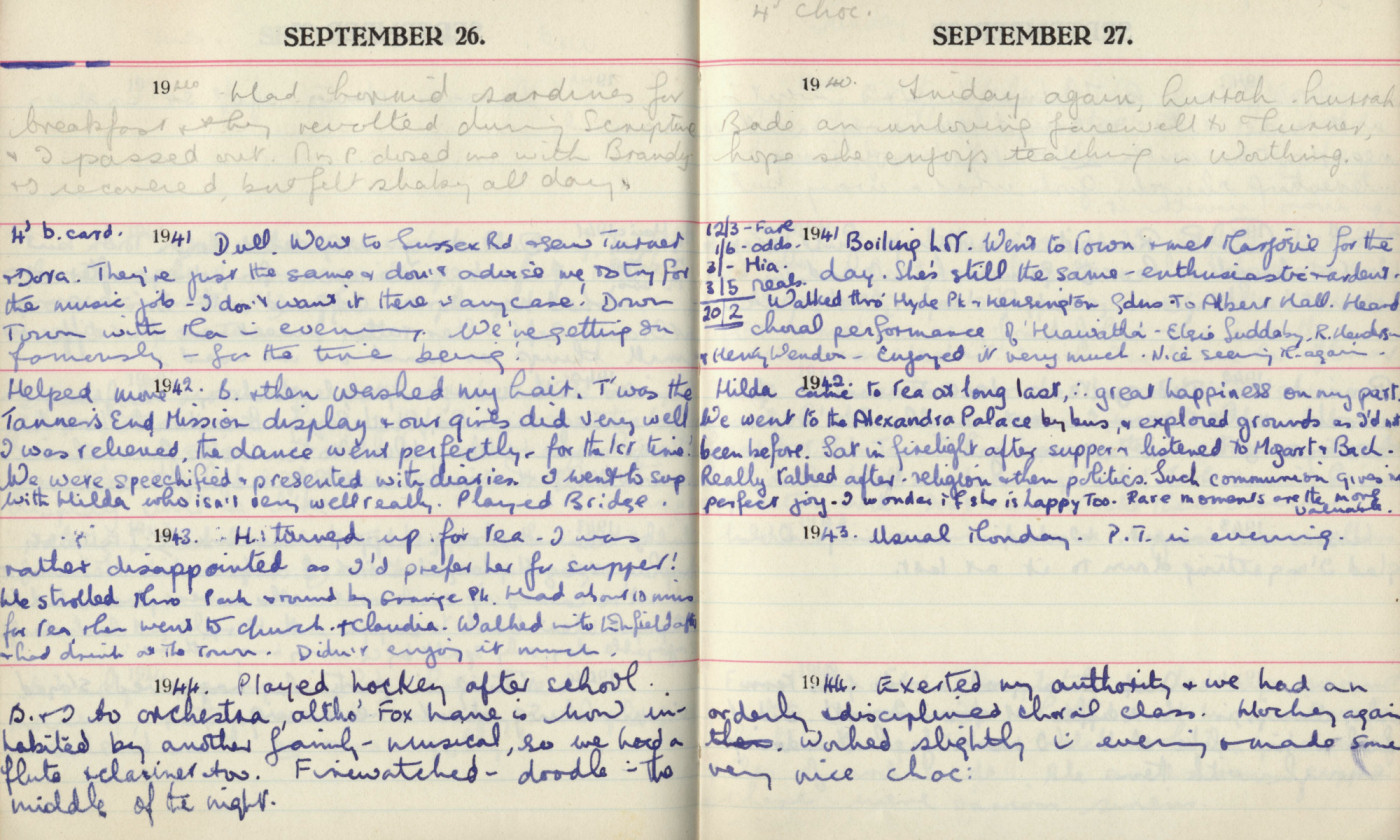 SEPTEMBER 26.
1940 Had horrid sardines for
breakfast & they revolted during Scripture
& I passed out. Mrs P. dosed me with Brandy
& I recovered, but felt shaky all day.
4' b. card. 1941 Dull. Went to Sussex Rd & saw Turner
& Dora. They're just the same & don't advise me to try for
the music job - I don't want it there in any case! Down
Town with in evening. We're getting on
famously - for the time being.
Helped 1942. B. & then washed my hair. T'was the
Tanner's End Mission display & our girls did very well
I was relieved, the dance went perfectly - for the 1st time!
We were speechified & presented with diaries. I went to sup
with Hilda who isn't very well really. Played Bridge.
1943. H. turned up for tea. I was
rather disappointed as I'd prefer her for supper!
We strolled thro' Park & round by Grange Pk. Had about 10 mins
for tea then went to church. & Claudia. Walked into Enfield after
& had drink at The Town. Didn't enjoy it much.
1944. Played hockey after school.
D. & I to orchestra altho' Fox Lane is now in-
habited by another family - musical, so we had a
flute & clarinet too. Firewatched - doodle in the
middle of the night.
4' choc.
SEPTEMBER 27.
1940. Friday again, hurrah. hurrah
Bade an unloving farewell to Turner,
hope she enjoys teaching in Worthing.
12/3 - Fare
1/6 - odds.
3/- Hia.
3/5 meals.
20/2
1941 Boiling hot. Went to Town & met Marjorie for the
day. She's still the same - enthusiastic & ardent.
Walked thro' Hyde Pk & Kensington Gdns to Albert Hall. Heard
choral performance of 'Hiawatha' - Elsie Suddaby, R. Henderson
& Henry Wendon - Enjoyed it very much. Nice seeing again.
Hilda 1942. came to tea at long last, ∴ great happiness on my part.
We went to the Alexandra Palace by bus, & explored grounds as I'd not
been before. Sat in firelight after supper & listened to Mozart & Bach.
Really talked after - religion & then politics. Such communion gives me
perfect joy. I wonder if she is happy too. Rare moments are the more
valuable.
1943. Usual Monday. P.T. in evening.
1944. Exerted my authority & we had an
orderly & disciplined choral class. Hockey again
Worked slightly in evening & made some
very nice choc: